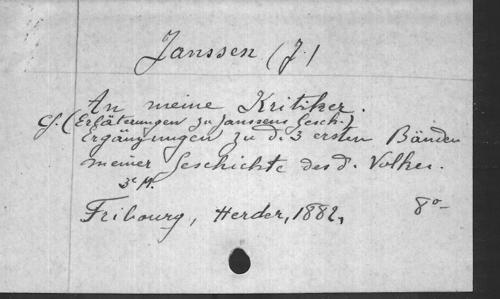 Janssen (J.)
An meine Kritiker.
Cf. (Erläterungen zu Janssens Gesch.)
Ergänzungen zu d. 3 ersten Bänden
meiner Geschichte des d. Volkes.
3e A.
Fribourg, Herder, 1882, 8o